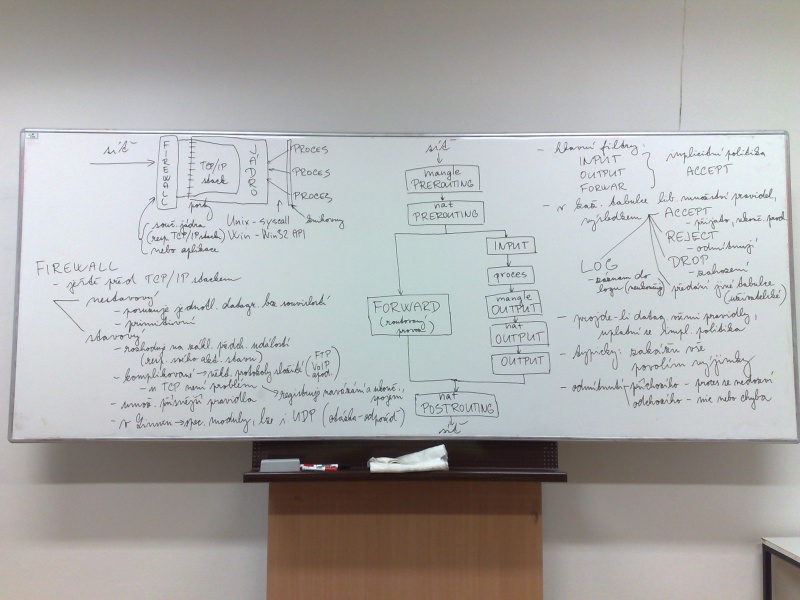 síť
FIREWALL
TCP/IP
stack
JÁDRO
PROCES
PROCES
PROCES
porty
souč. jádra
(resp. TCP/IP stack)
nebo aplikace
Unix - syscall
Win - Win32 API
knihovny
FIREWALL
- ještě před TCP/IP stackem
nestavový
- posuzuje jednotl. datagr. bez souvislostí
- primitivní
stavový
- rozhoduje na zákl. předch. událostí
(resp. svého akt. stavu)
- komplikované → někt. protokoly složité
(FTP
VoIP
apod.)
- u TCP není problém → registruje navázání a ukonč.
spojení
- umož. přísnější pravidla
- v Linuxu → spec. moduly, lze i UDP (otázka-odpověď)
síť
mangle
PREROUTING
nat
PREROUTING
INPUT
proces
mangle
OUTPUT
nat
OUTPUT
OUTPUT
FORWARD
(routovaný
provoz)
nat
POSTROUTING
síť
- hlavní filtry:
INPUT
OUTPUT
FORWAR
implicitní politika
ACCEPT
- v každ. tabulce lib. množství pravidel,
výsledkem
ACCEPT
- přijato, skonč. prů
REJECT
- odmítnutí
DROP
- zahození
předání jiné tabulce
(uživatelské)
LOG
- záznam do
logu (neukonč.)
- projde-li datag. všemi pravidly,
uplatní se impl. politika
- typicky: zakážu vše
povolím výjimky
- odmítnutí příchozího - proces se nedozví
odchozího - nic nebo chyba